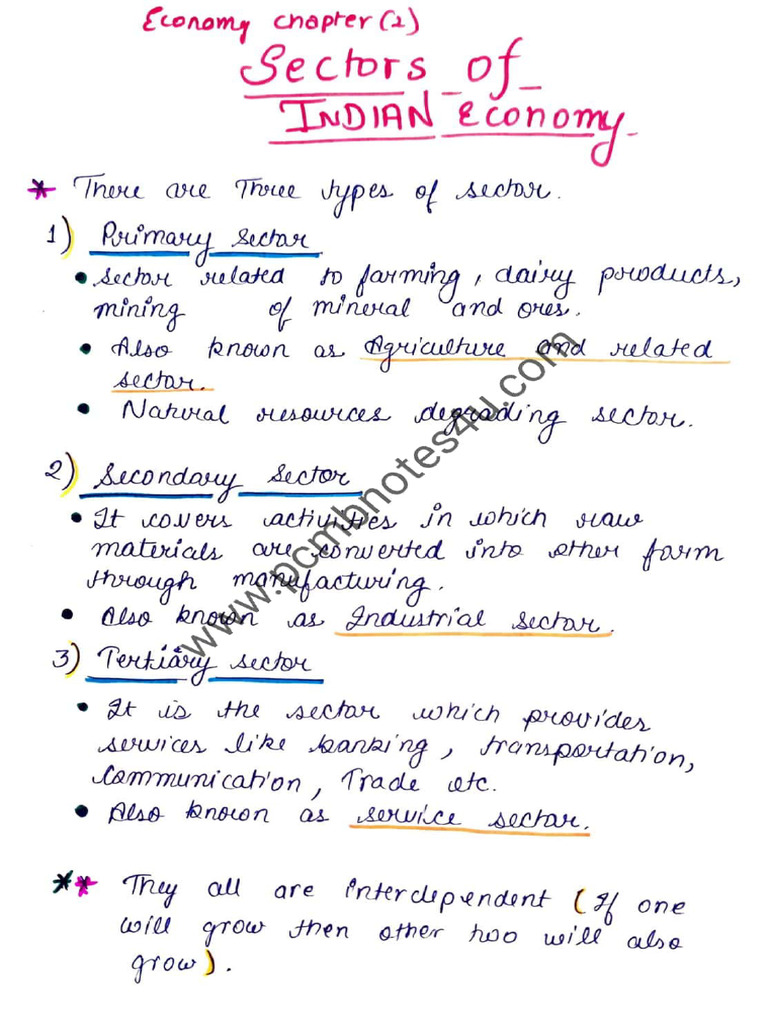 Economy chapter (2)
Sectors of
INDIAN Economy
* There are Three types of sector.
1) Primary sector
• sector related to farming, dairy products,
mining of mineral and ores.
• Also known as Agriculture and related
sector.
• Natural resources degrading sector.
2) Secondary sector
• It covers activities in which raw
materials are converted into other form
through manufacturing.
• Also known as Industrial sector.
3) Tertiary sector
• It is the sector which provides
services like banking, transportation,
communication, Trade etc.
• Also known as service sector.
** They all are interdependent (If one
will grow then other two will also
grow).
www.pcmbnotes4u.com